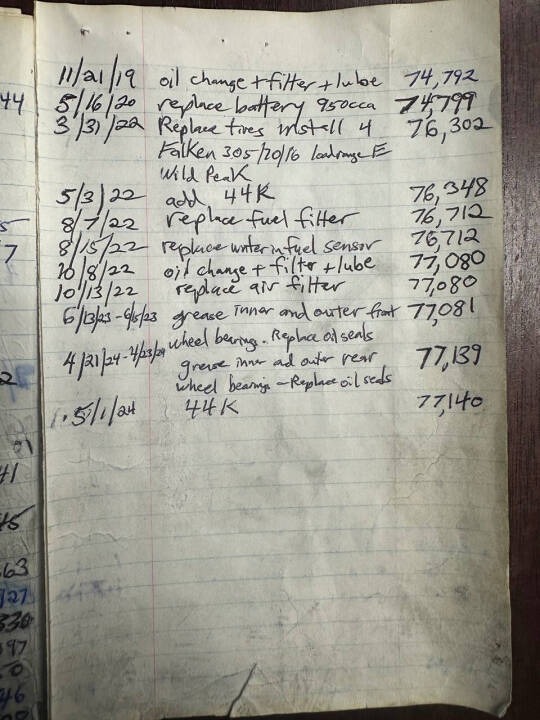 11/21/19 oil change + filter + lube 74,792
5/16/20 replace battery 950cca 74,799
3/31/22 Replace tires install 4 76,302
Falken 305/70/16 loadrange E
Wild Peak
5/3/22 add 44K 76,348
8/7/22 replace fuel filter 76,712
8/15/22 replace water in fuel sensor 76,712
10/8/22 oil change + filter + lube 77,080
10/13/22 replace air filter 77,080
6/13/23 - 6/15/23 grease inner and outer front 77,081
wheel bearings. Replace oil seals
4/21/24 - 4/23/24 grease inner and outer rear 77,139
wheel bearings - Replace oil seals
5/1/24 44K 77,140
44
7
2
01
41
45
63
127
330
97
0
46